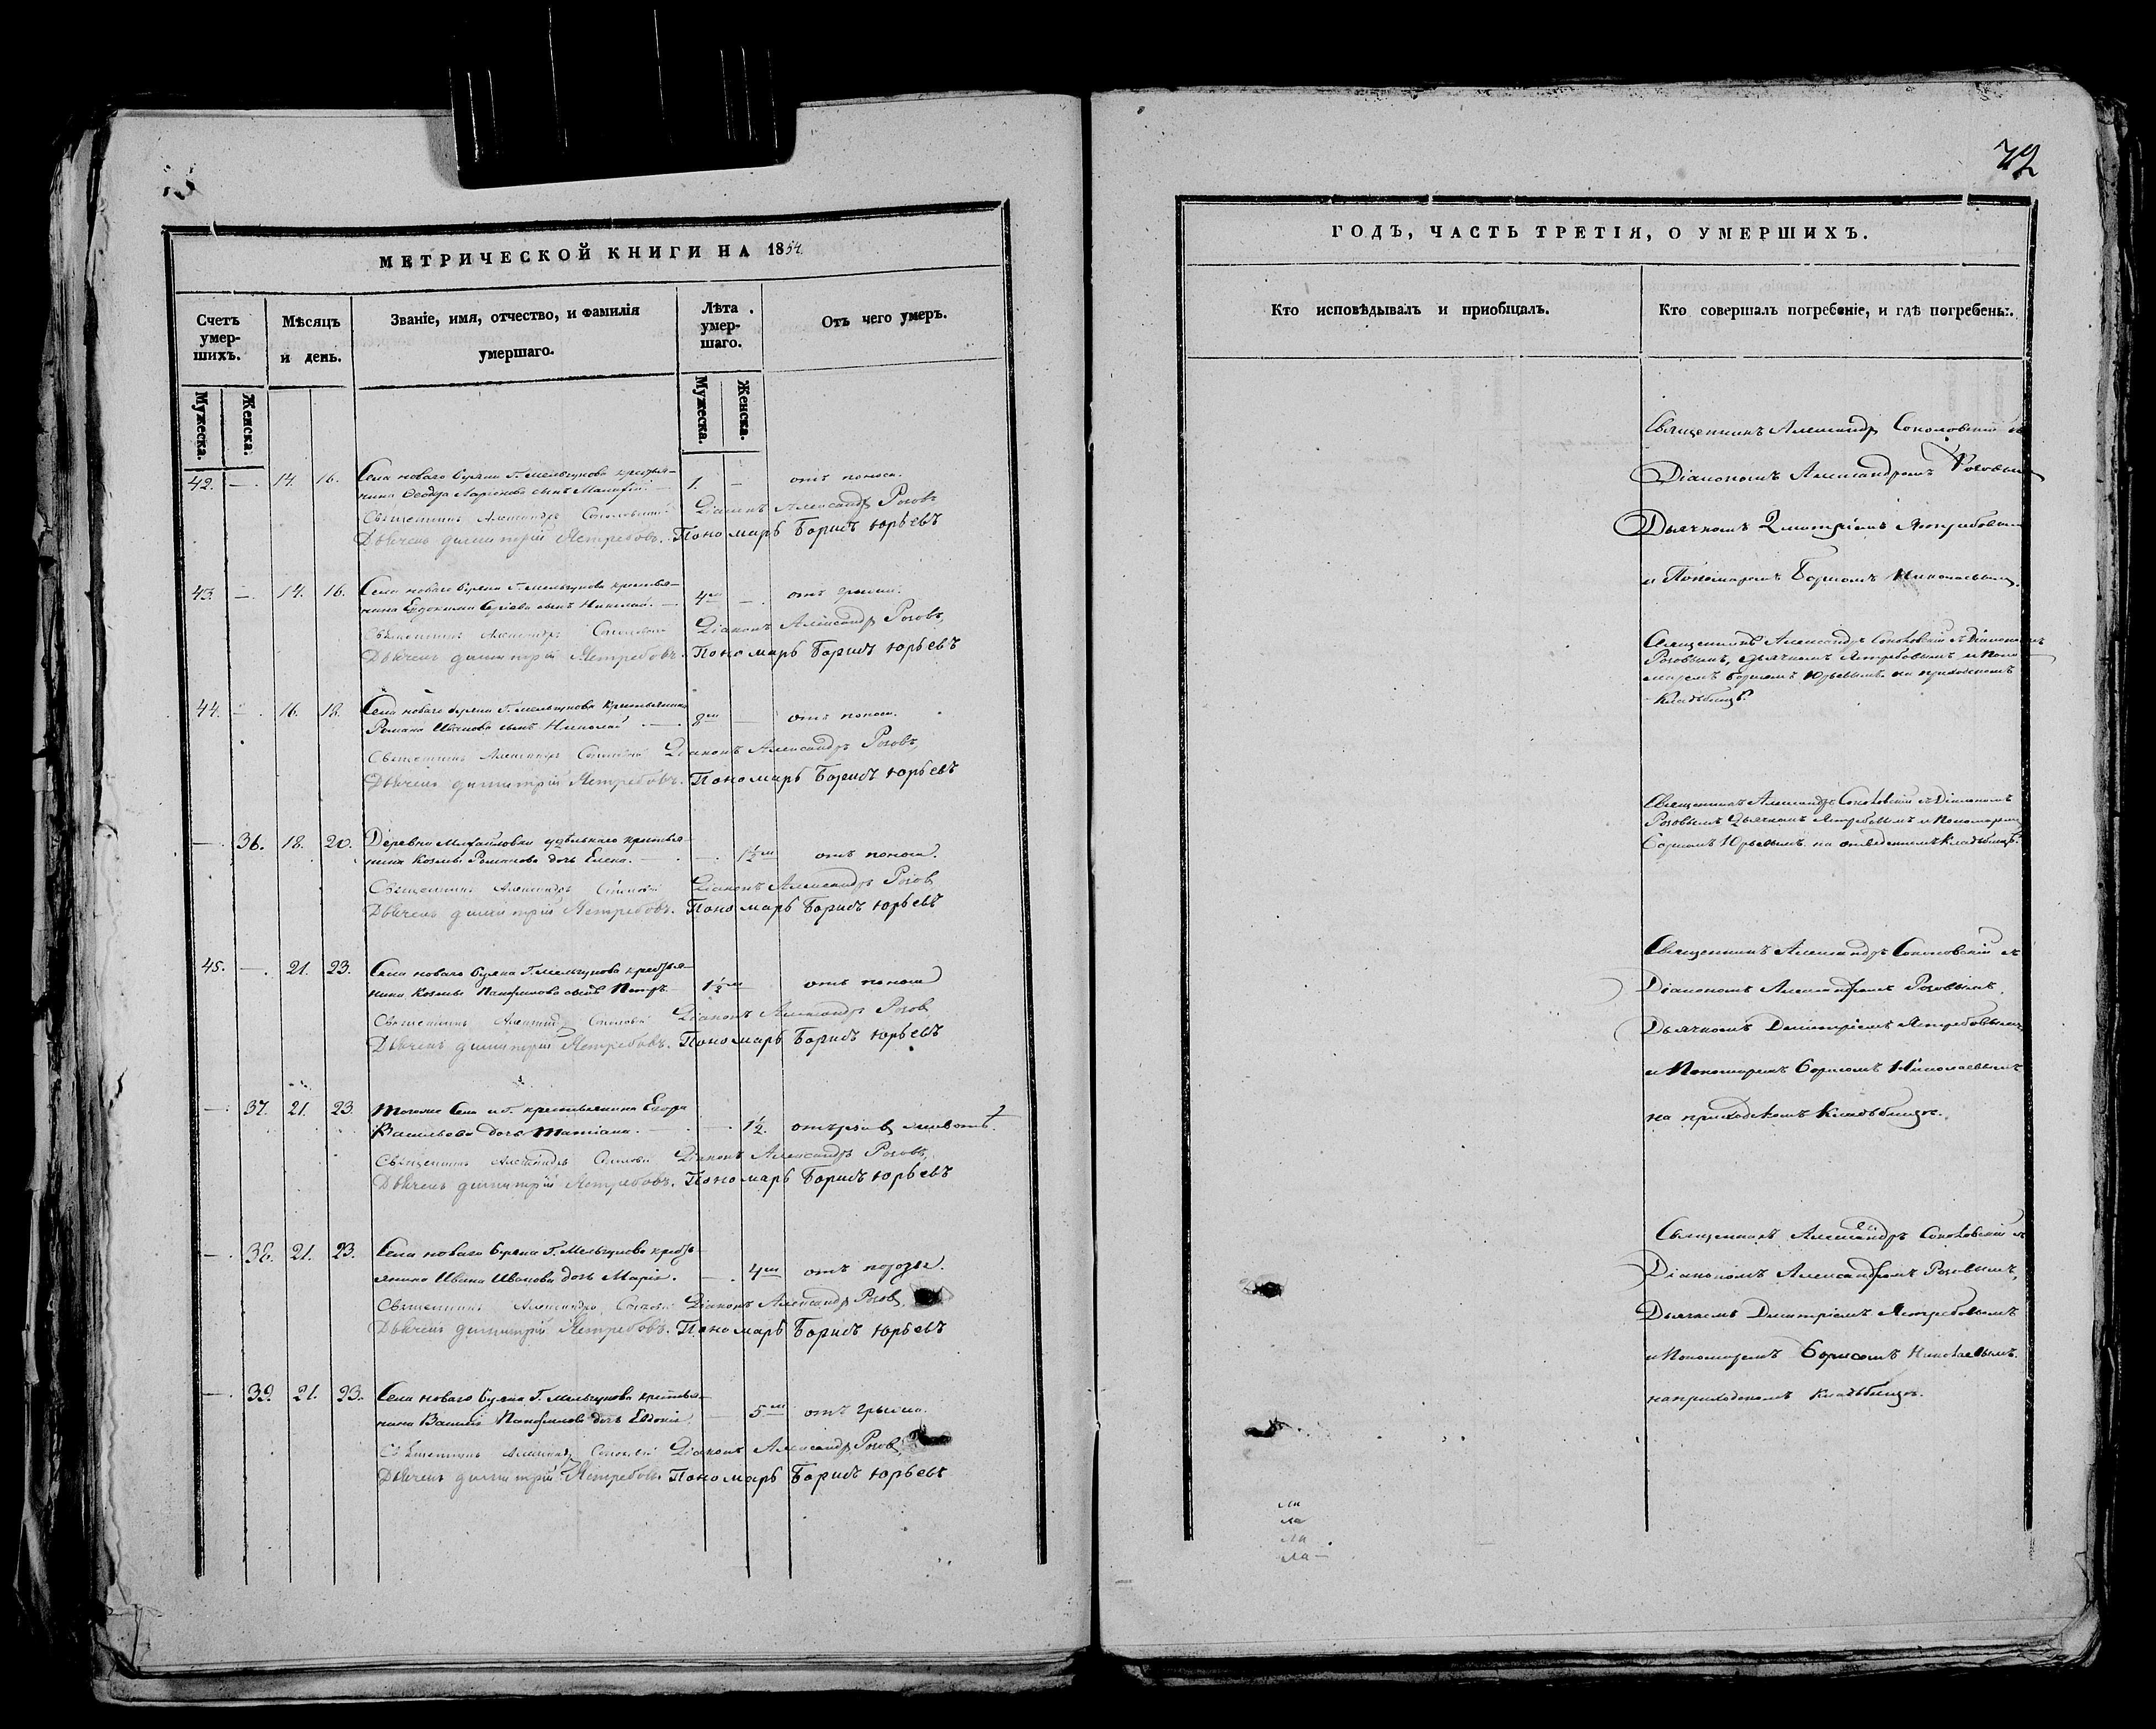 72
МЕТРИЧЕСКОЙ КНИГИ НА 1854
Счетъ умер-шихъ.
Мѣсяцъ и день.
Званіе, имя, отчество, и фамилія умершаго.
Лѣта умер-шаго.
Отъ чего умеръ.
Мужеска. Женска.
Мужеска. Женска.
42. — 14. 16. Села новаго буяна Г. Мельгунова крестья-
нина Ѳеодора Ларіонова сынъ 1. — отъ поноса.
Священникъ Александръ Соколовскій Діаконъ Александръ Роговъ
Дьячекъ димитрій Ястребовъ. Пономарь Борисъ Юрьевъ
43. — 14. 16. Села новаго буяна Г. Мельгунова крестья-
нина Евдокима Сергіева сынъ Николай. — 4 — отъ грыжи.
Священникъ Александръ Соколовскій Діаконъ Александръ Роговъ,
Дьячекъ димитрій Ястребовъ. Пономарь Борисъ Юрьевъ
44. — 16. 18. Села новаго буяна Г. Мельгунова крестьянина
Романа Иванова сынъ Николай — отъ поноса.
Священникъ Александръ Соколовскій Діаконъ Александръ Роговъ,
Дьячекъ димитрій Ястребовъ. Пономарь Борисъ Юрьевъ
— 36. 18. 20. Деревни Михайловки удѣльнаго крестья-
нина Козмы Романова дочь Елена. — 1½ отъ поноса.
Священникъ Александръ Соколовскій Діаконъ Александръ Роговъ
Дьячекъ димитрій Ястребовъ. Пономарь Борисъ Юрьевъ
45. — 21. 23. Села новаго буяна Г. Мельгунова крестья-
нина Козмы Панфилова сынъ Петръ — 1½ отъ поноса
Священникъ Александръ Соколовскій Діаконъ Александръ Роговъ
Дьячекъ димитрій Ястребовъ. Пономарь Борисъ Юрьевъ
— 37. 21. 23. Тогоже Села и г. крестьянина Егора
Васильева дочь Татіана. — 1½. отъ рези в животѣ.
Священникъ Александръ Соколовскій Діаконъ Александръ Роговъ,
Дьячекъ димитрій Ястребовъ. Пономарь Борисъ Юрьевъ
— 38. 21. 23. Села новаго буяна Г. Мельгунова кресть-
янина Ивана Иванова дочь Марія. — 4 отъ
Священникъ Александръ Соколовскій Діаконъ Александръ Роговъ
Дьячекъ димитрій Ястребовъ. Пономарь Борисъ Юрьевъ
— 39. 21. 23. Села новаго буяна Г. Мельгунова крестья-
нина Василія Панфилова дочь Евдокія 5 отъ грыжи.
Священникъ Александръ Соколовскій Діаконъ Александръ Роговъ,
Дьячекъ димитрій Ястребовъ Пономарь Борисъ Юрьевъ
ГОДЪ, ЧАСТЬ ТРЕТІЯ, О УМЕРШИХЪ.
Кто исповѣдывалъ и пріобщалъ.
Кто совершалъ погребеніе, и гдѣ погребены.
Священникъ Александръ Соколовскій съ
Діакономъ Александромъ Роговымъ
Дьячкомъ Дмитріемъ Ястребовымъ
и Пономаремъ Борисомъ Николаевымъ.
Священникъ Александръ Соколовскій съ Діакономъ
Роговымъ, дьячкомъ Ястребовымъ и Поно-
маремъ Борисомъ Юрьевымъ на приходскомъ
Кладбищѣ.
Священникъ Александръ Соколовскій съ Діакономъ
Роговымъ Дьячкомъ Ястребовымъ и Пономаремъ
Борисомъ Юрьевымъ на отведенномъ кладбищѣ.
Священникъ Александръ Соколовскій съ
Діакономъ Александромъ Роговымъ,
Дьячкомъ Димитріемъ Ястребовымъ
и Пономаремъ Борисомъ Николаевымъ
на приходскомъ Кладбищѣ.
Священникъ Александръ Соколовскій съ
Діакономъ Александромъ Роговымъ,
Дьячкомъ Дмитріемъ Ястребовымъ
и Пономаремъ Борисомъ Николаевымъ.
на приходскомъ Кладбищѣ.